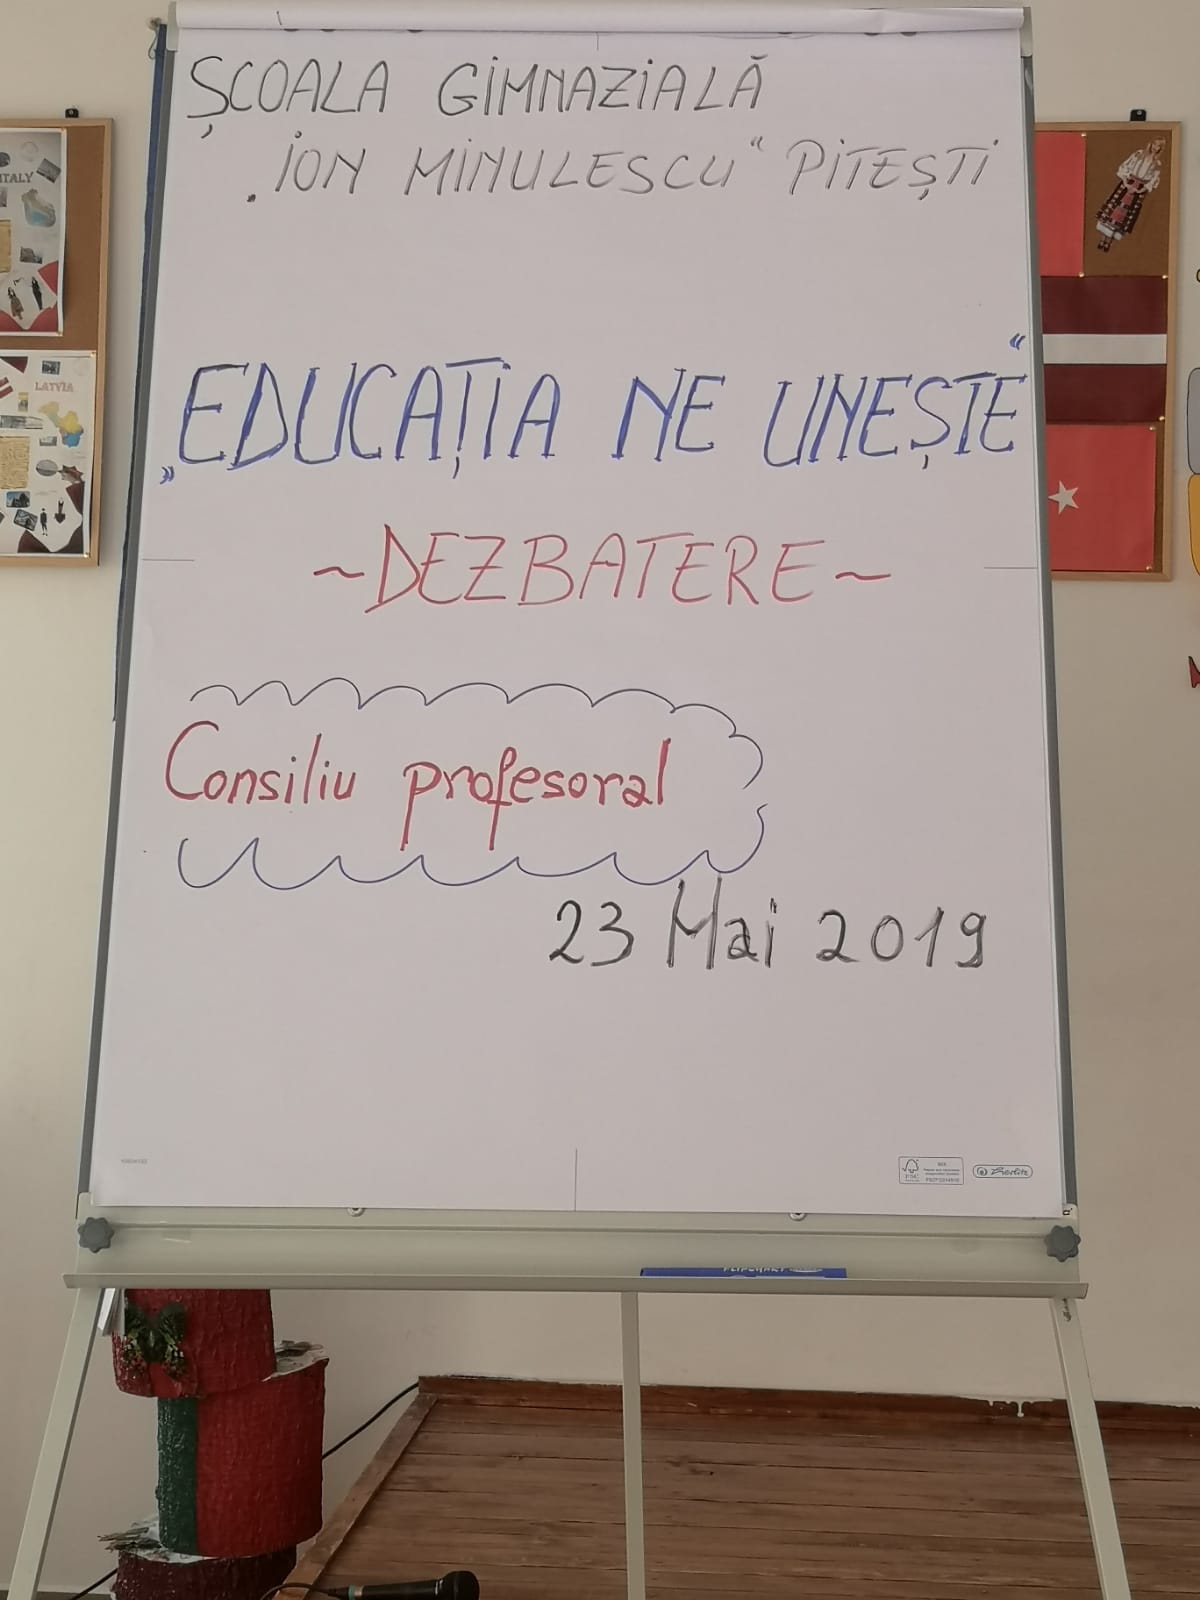 ȘCOALA GIMNAZIALĂ
„ION MINULESCU“ PITEȘTI
„EDUCAȚIA NE UNEȘTE“
~DEZBATERE~
Consiliu profesoral
23 Mai 2019
ITALY
LATVIA
FSC
MIX
Herlitz
FLIPCHART